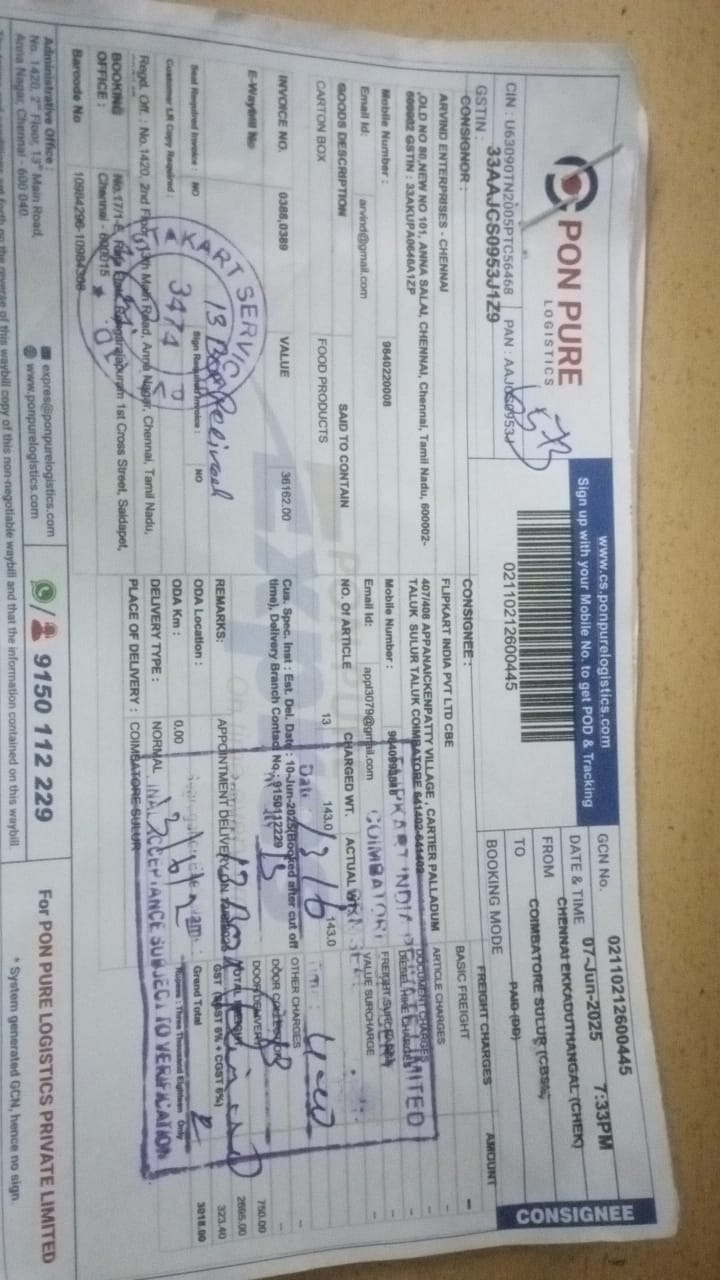 PON PURE
LOGISTICS
www.cs.ponpurelogistics.com
Sign up with your Mobile No. to get POD & Tracking
02110212600445
CONSIGNEE
CIN : U63090TN2005PTC56468 PAN : AAJCS0953J
GSTIN : 33AAJCS0953J1Z9
GCN No. 02110212600445
DATE & TIME 07-Jun-2025 7:33PM
FROM CHENNAI EKKADUTHANGAL (CHEK)
TO COIMBATORE SULUR (CBSA)
BOOKING MODE PAID (DD)
CONSIGNOR :
ARVIND ENTERPRISES - CHENNAI
,OLD NO 80,NEW NO 101, ANNA SALAI, CHENNAI, Chennai, Tamil Nadu, 600002-
600002 GSTIN : 33AKUPA0646A1ZP
Mobile Number : 9840220008
Email Id: arvind@gmail.com
CONSIGNEE :
FLIPKART INDIA PVT LTD CBE
407/408 APPANAICKENPATTY VILLAGE , CARTIER PALLADUM
TALUK SULUR TALUK COIMBATORE 641402-641402
Mobile Number :
Email Id: appl3079@gmail.com
FREIGHT CHARGES AMOUNT
BASIC FREIGHT -
ARTICLE CHARGES -
DOCUMENT CHARGES -
VALUE SURCHARGE -
OTHER CHARGES -
DOOR DELIVERY 750.00
2695.00
GST 323.40
Grand Total 3018.00
Rupees : Three Thousand Eighteen Only
GOODS DESCRIPTION SAID TO CONTAIN NO. Of ARTICLE CHARGED WT. ACTUAL WT.
CARTON BOX FOOD PRODUCTS 13 143.0 143.0
INVOICE NO. 0388,0389 VALUE 36162.00
E-Waybill No
Cus. Spec. Inst : Est. Del. Date : 10-Jun-2025(Booked after cut off
time), Delivery Branch Contact No.: 9150112229
REMARKS: APPOINTMENT DELIVERY ON
Seal Required Invoice : NO Sign Required Invoice : NO
ODA Location :
Customer LR Copy Required :
ODA Km : 0.00
DELIVERY TYPE : NORMAL
PLACE OF DELIVERY : COIMBATORE SULUR
Regd. Off. : No.1420, 2nd Floor, 13th Main Road, Anna Nagar, Chennai, Tamil Nadu,
BOOKING OFFICE : 1st Cross Street, Saidapet,
Chennai - 600015
Barcode No 10984296-10984308
3474
13 Box Received
FLIPKART INDIA PRIVATE LIMITED
COIMBATORE
FINAL ACCEPTANCE SUBJECT TO VERIFICATION
Administrative Office
No. 1420, 2nd Floor, 13th Main Road,
Anna Nagar, Chennai - 600 040.
expres@ponpurelogistics.com
www.ponpurelogistics.com
9150 112 229
For PON PURE LOGISTICS PRIVATE LIMITED
* System generated GCN, hence no sign.
of this waybill copy of this non-negotiable waybill and that the information contained on this waybill